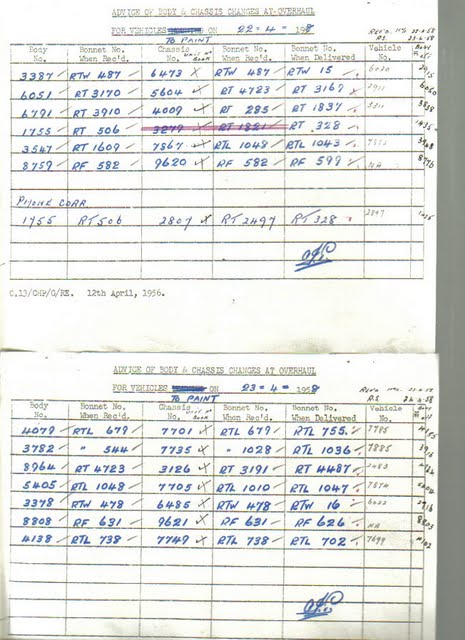 ADVICE OF BODY & CHASSIS CHANGES AT OVERHAUL
FOR VEHICLES ON 22-4- 1958 Rec'd
TO PAINT
Body No. Bonnet No. When Rec'd. Chassis No. Bonnet No. When Rec'd. Bonnet No. When Delivered Vehicle No. Body
3387 RTW 487 6473 RTW 487 RTW 15 6020
6051 RT 3170 5604 RT 4723 RT 3167 6050
6791 RT 3910 4009 RT 285 RT 1837
1755 RT 506 3279 RT 1821 RT 328
3547 RT 1609 7867 RTL 1048 RTL 1043
8759 RF 582 9620 RF 582 RF 599 NA
PHONE CORR.
1755 RT 506 2807 RT 2497 RT 328
C.13/CHP/O/RE. 12th April, 1956.
ADVICE OF BODY & CHASSIS CHANGES AT OVERHAUL
FOR VEHICLES ON 23-4- 1958 Rec'd
TO PAINT
Body No. Bonnet No. When Rec'd. Chassis No. Bonnet No. When Rec'd. Bonnet No. When Delivered Vehicle No. Body
4079 RTL 679 7701 RTL 679 RTL 755 7785
3782 " 544 7735 " 1028 RTL 1036 7885
8964 RT 4723 3126 RT 3191 RT 4487
5405 RTL 1048 7705 RTL 1010 RTL 1047
3378 RTW 478 6485 RTW 478 RTW 16 6022
8808 RF 631 9621 RF 631 RF 626 NA 8803
4138 RTL 738 7749 RTL 738 RTL 702 7699